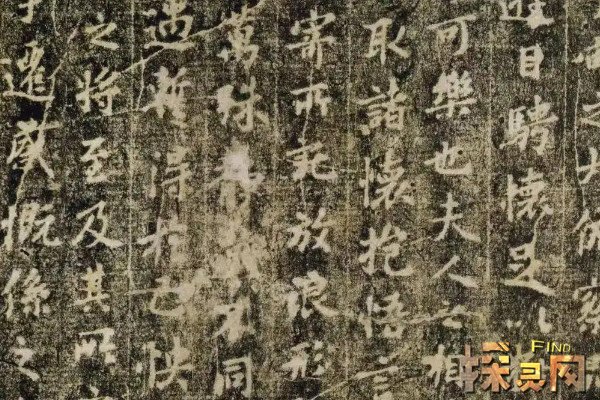 之大俯察
遊目騁懷足以
可樂也夫人之相
取諸懷抱悟言
寄所託放浪形
萬殊靜躁不同
遇暫得於己快
之將至及其所
遷感慨係之
FIND
探灵网